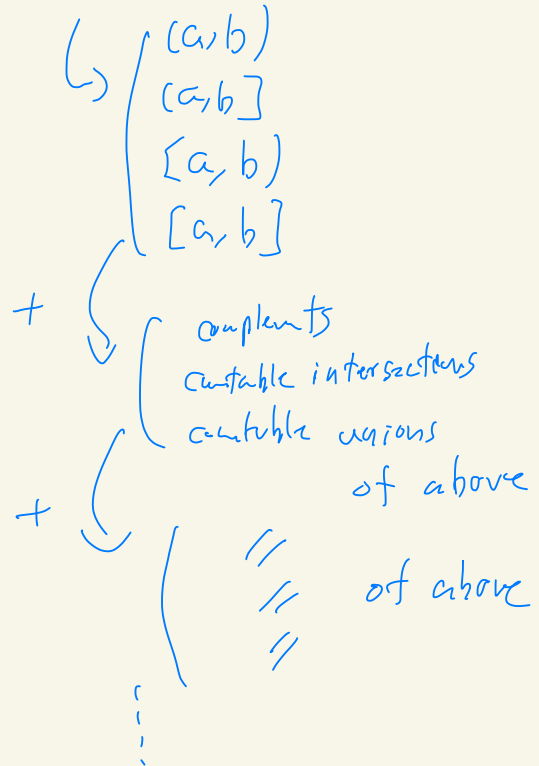 (a,b)
(a,b]
[a,b)
[a,b]
+
complements
countable intersections
countable unions
of above
+
〃
of above
〃
〃